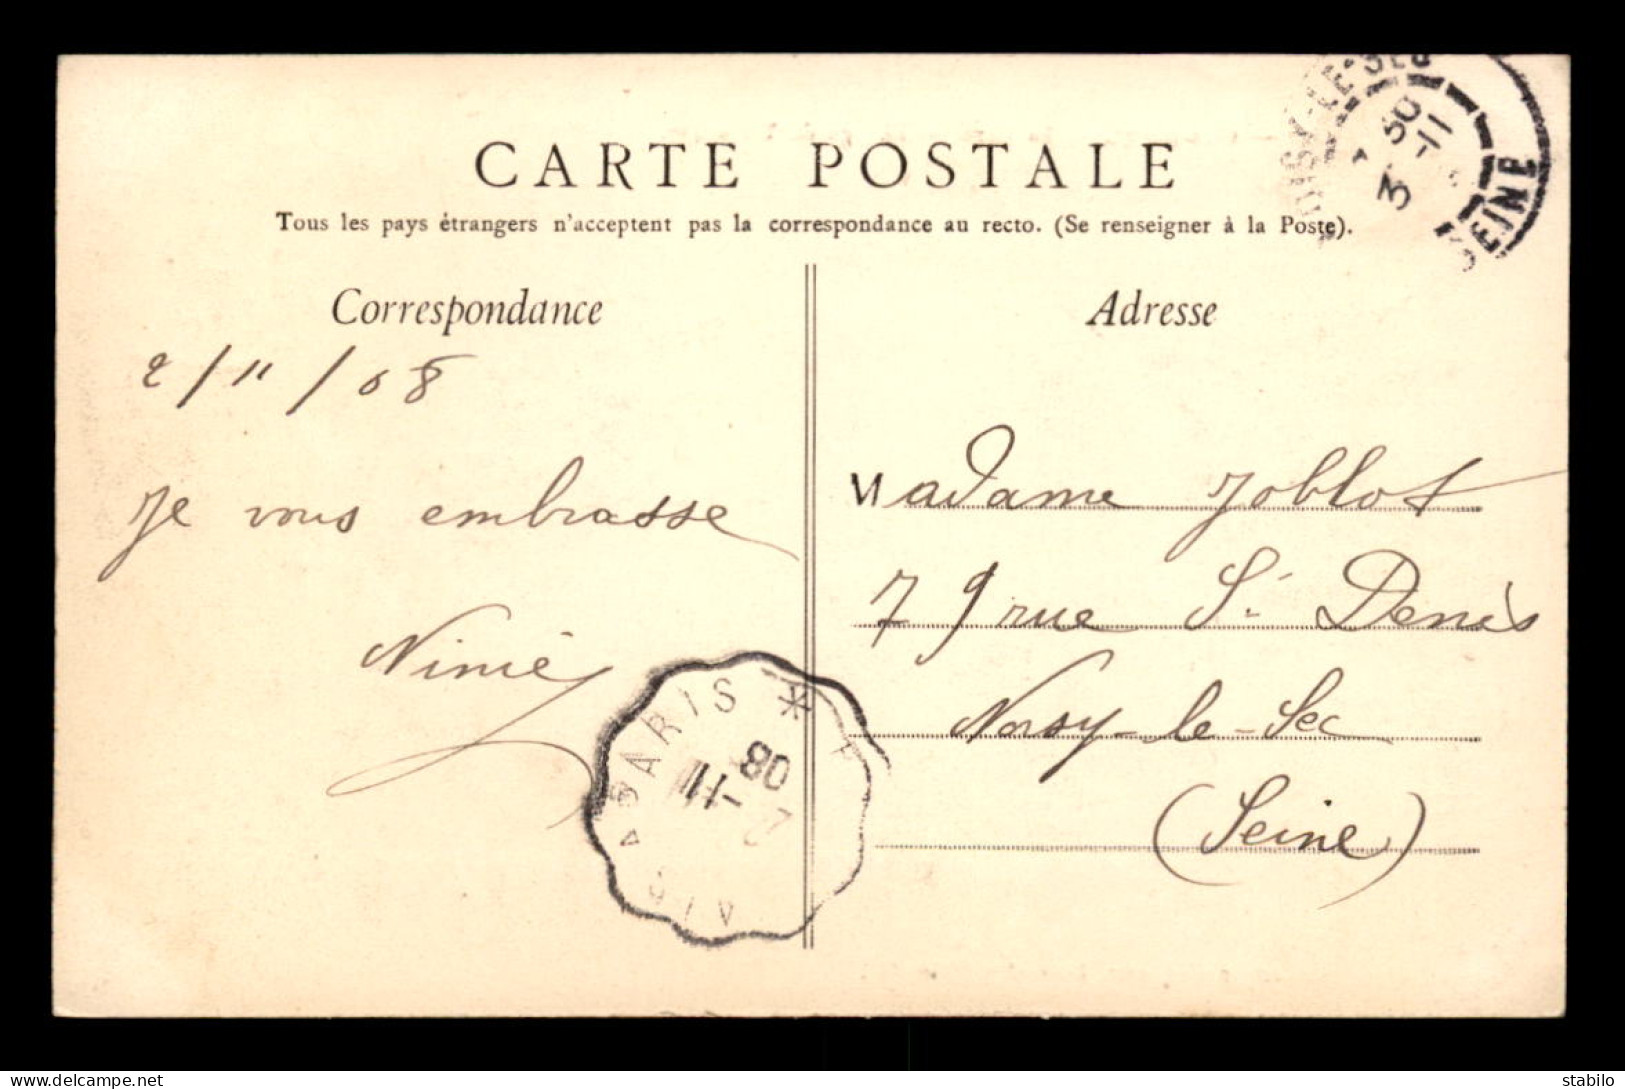 CARTE POSTALE
Tous les pays étrangers n'acceptent pas la correspondance au recto. (Se renseigner à la Poste).
Correspondance
2/11/08
Je vous embrasse
Ninie
Adresse
Madame Joblot
79 rue St Denis
Noisy-le-Sec
(Seine)
PARIS *
2 -11
08
LE-SEC
30
3 -11
SEINE
www.delcampe.net
stabilo